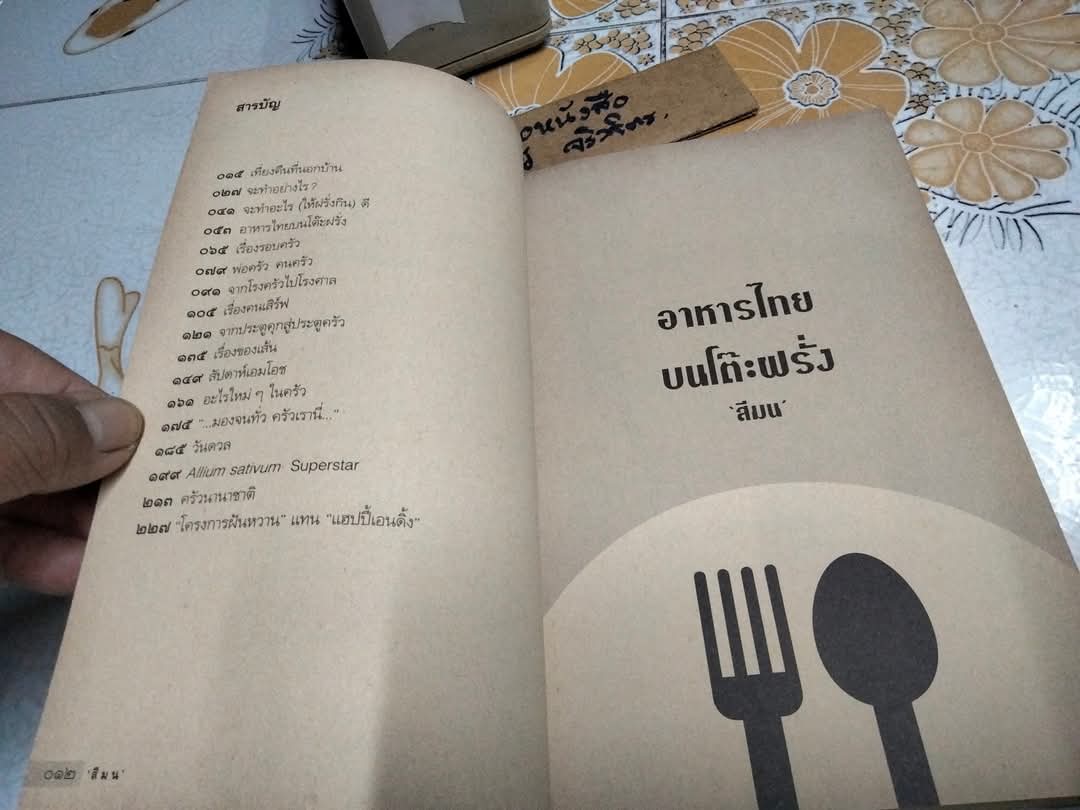 สารบัญ
๐๑๕ เที่ยงคืนที่นอกบ้าน
๐๒๗ จะทำอย่างไร ?
๐๔๑ จะทำอะไร (ให้ฝรั่งกิน) ดี
๐๕๓ อาหารไทยบนโต๊ะฝรั่ง
๐๖๕ เรื่องรอบครัว
๐๗๙ พ่อครัว คนครัว
๐๙๑ จากโรงครัวไปโรงศาล
๑๐๕ เรื่องคนเสิร์ฟ
๑๒๑ จากประตูคุกสู่ประตูครัว
๑๓๕ เรื่องของเส้น
๑๔๙ สัปดาห์เอมโอช
๑๖๑ อะไรใหม่ ๆ ในครัว
๑๗๕ "...มองจนทั่ว ครัวเรานี่..."
๑๘๕ วันดวล
๑๙๙ Allium sativum Superstar
๒๑๓ ครัวนานาชาติ
๒๒๗ "โครงการฝันหวาน" แทน "แฮปปี้เอนดิ้ง"
๐๑๒ 'สีมน'
หนังสือ
อาหารไทย
บนโต๊ะฝรั่ง
'สีมน'